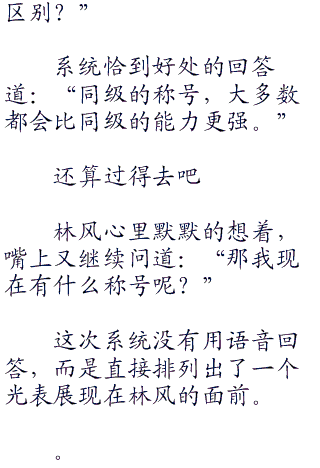 区别？”
系统恰到好处的回答
道：“同级的称号，大多数
都会比同级的能力更强。”
还算过得去吧
林风心里默默的想着，
嘴上又继续问道：“那我现
在有什么称号呢？”
这次系统没有用语音回
答，而是直接排列出了一个
光表展现在林风的面前。
。